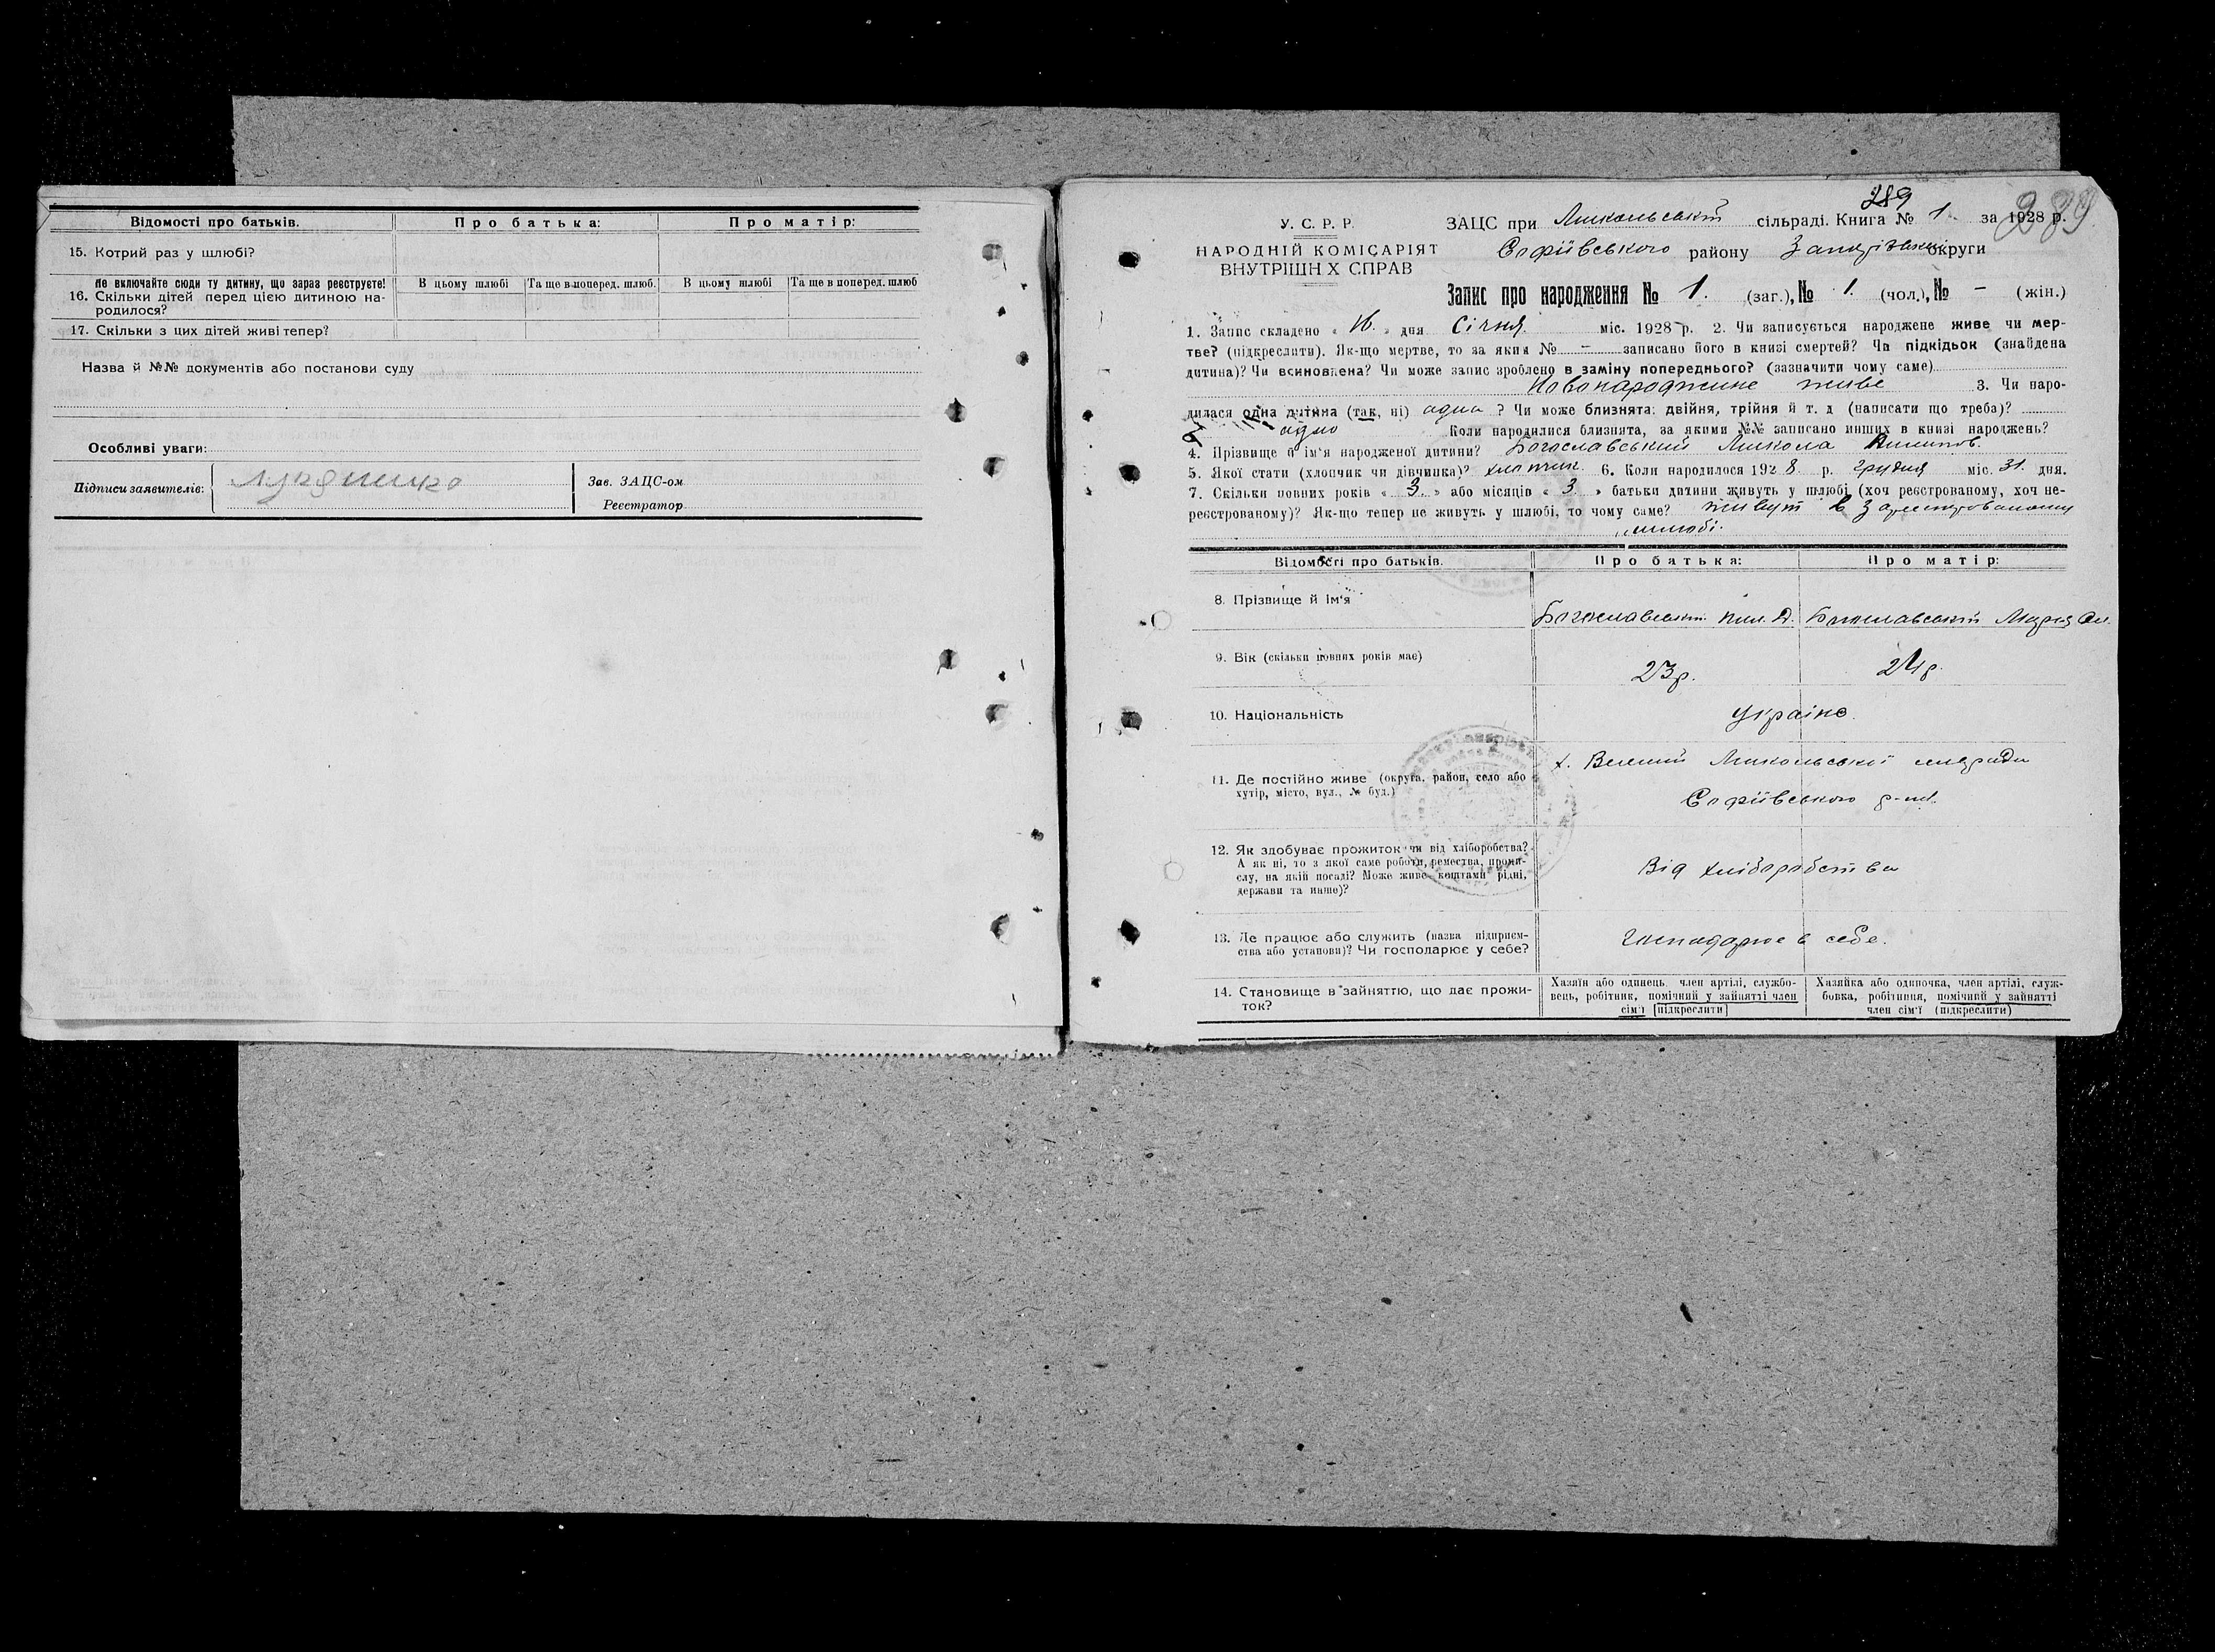 Відомості про батьків. Про батька: Про матір:
15. Котрий раз у шлюбі?
Не включайте сюди ту дитину, що зараз реєструєте!
16. Скільки дітей перед цією дитиною на-
родилося?
В цьому шлюбі Та ще в поперед. шлюб. В цьому шлюбі Та ще в поперед. шлюб
17. Скільки з цих дітей живі тепер?
Назва й №№ документів або постанови суду
Особливі уваги:
Підписи заявителів:
Зав. ЗАЦС-ом
Реєстратор
289
У. С. Р. Р.
НАРОДНІЙ КОМІСАРІЯТ
ВНУТРІШН Х СПРАВ
ЗАЦС при Микольській сільраді. Книга № 1. за 1928 р.
Софіївського району Запорізької округи
Запис про народження № 1. (заг.), № 1. (чол.), № - (жін.)
1. Запис складено « 16. » дня Січня міс. 1928 р. 2. Чи записується народжене живе чи мер-
тве? (підкреслити). Як-що мертве, то за яким № - записано його в книзі смертей? Чи підкідьок (знайдена
дитина)? Чи всиновлена? Чи може запис зроблено в заміну попереднього? (зазначити чому саме)
Новонароджене живе 3. Чи наро-
дилася одна дитина (так, ні) одна ? Чи може близнята: двійня, трійня й т. д (написати що треба)?
одно Коли народилися близнята, за якими №№ записано инших в книзі народжень?
4. Прізвище й ім'я народженої дитини? Богославський Микола
5. Якої стати (хлопчик чи дівчинка)? хлопчик 6. Коли народилося 1928 р. грудня міс. 31. дня.
7. Скільки повних років « 3. » або місяців « 3. » батьки дитини живуть у шлюбі (хоч реєстрованому, хоч не-
реєстрованому)? Як-що тепер не живуть у шлюбі, то чому саме? живут в зареєстрованому
шлюбі.
Відомості про батьків. Про батька: Про матір:
8. Прізвище й ім'я
Богославський Пил. Д. Богославській Марія
9. Вік (скільки повних років має) 23р. 24р.
10. Національність Україне.
11. Де постійно живе (округа, район, село або
хутір, місто, вул., № буд.)
х. Микольської сільради
Софіївського р-ну.
12. Як здобуває прожиток чи від хліборобства?
А як ні, то з якої саме роботи, ремества, проми-
слу, на якій посаді? Може живе коштами рідні,
держави та инше)?
Від хліборобства
13. Де працює або служить (назва підприєм-
ства або установи)? Чи господарює у себе?
Господарює в себе.
14. Становище в зайняттю, що дає прожи-
ток?
Хазяїн або одинець, член артілі, службо-
вець, робітник, помічний у зайнятті член
сім'ї [підкреслити]
Хазяйка або одиночка, член артілі, служ-
бовка, робітниця, помічний у зайнятті
член сім'ї (підкреслити)